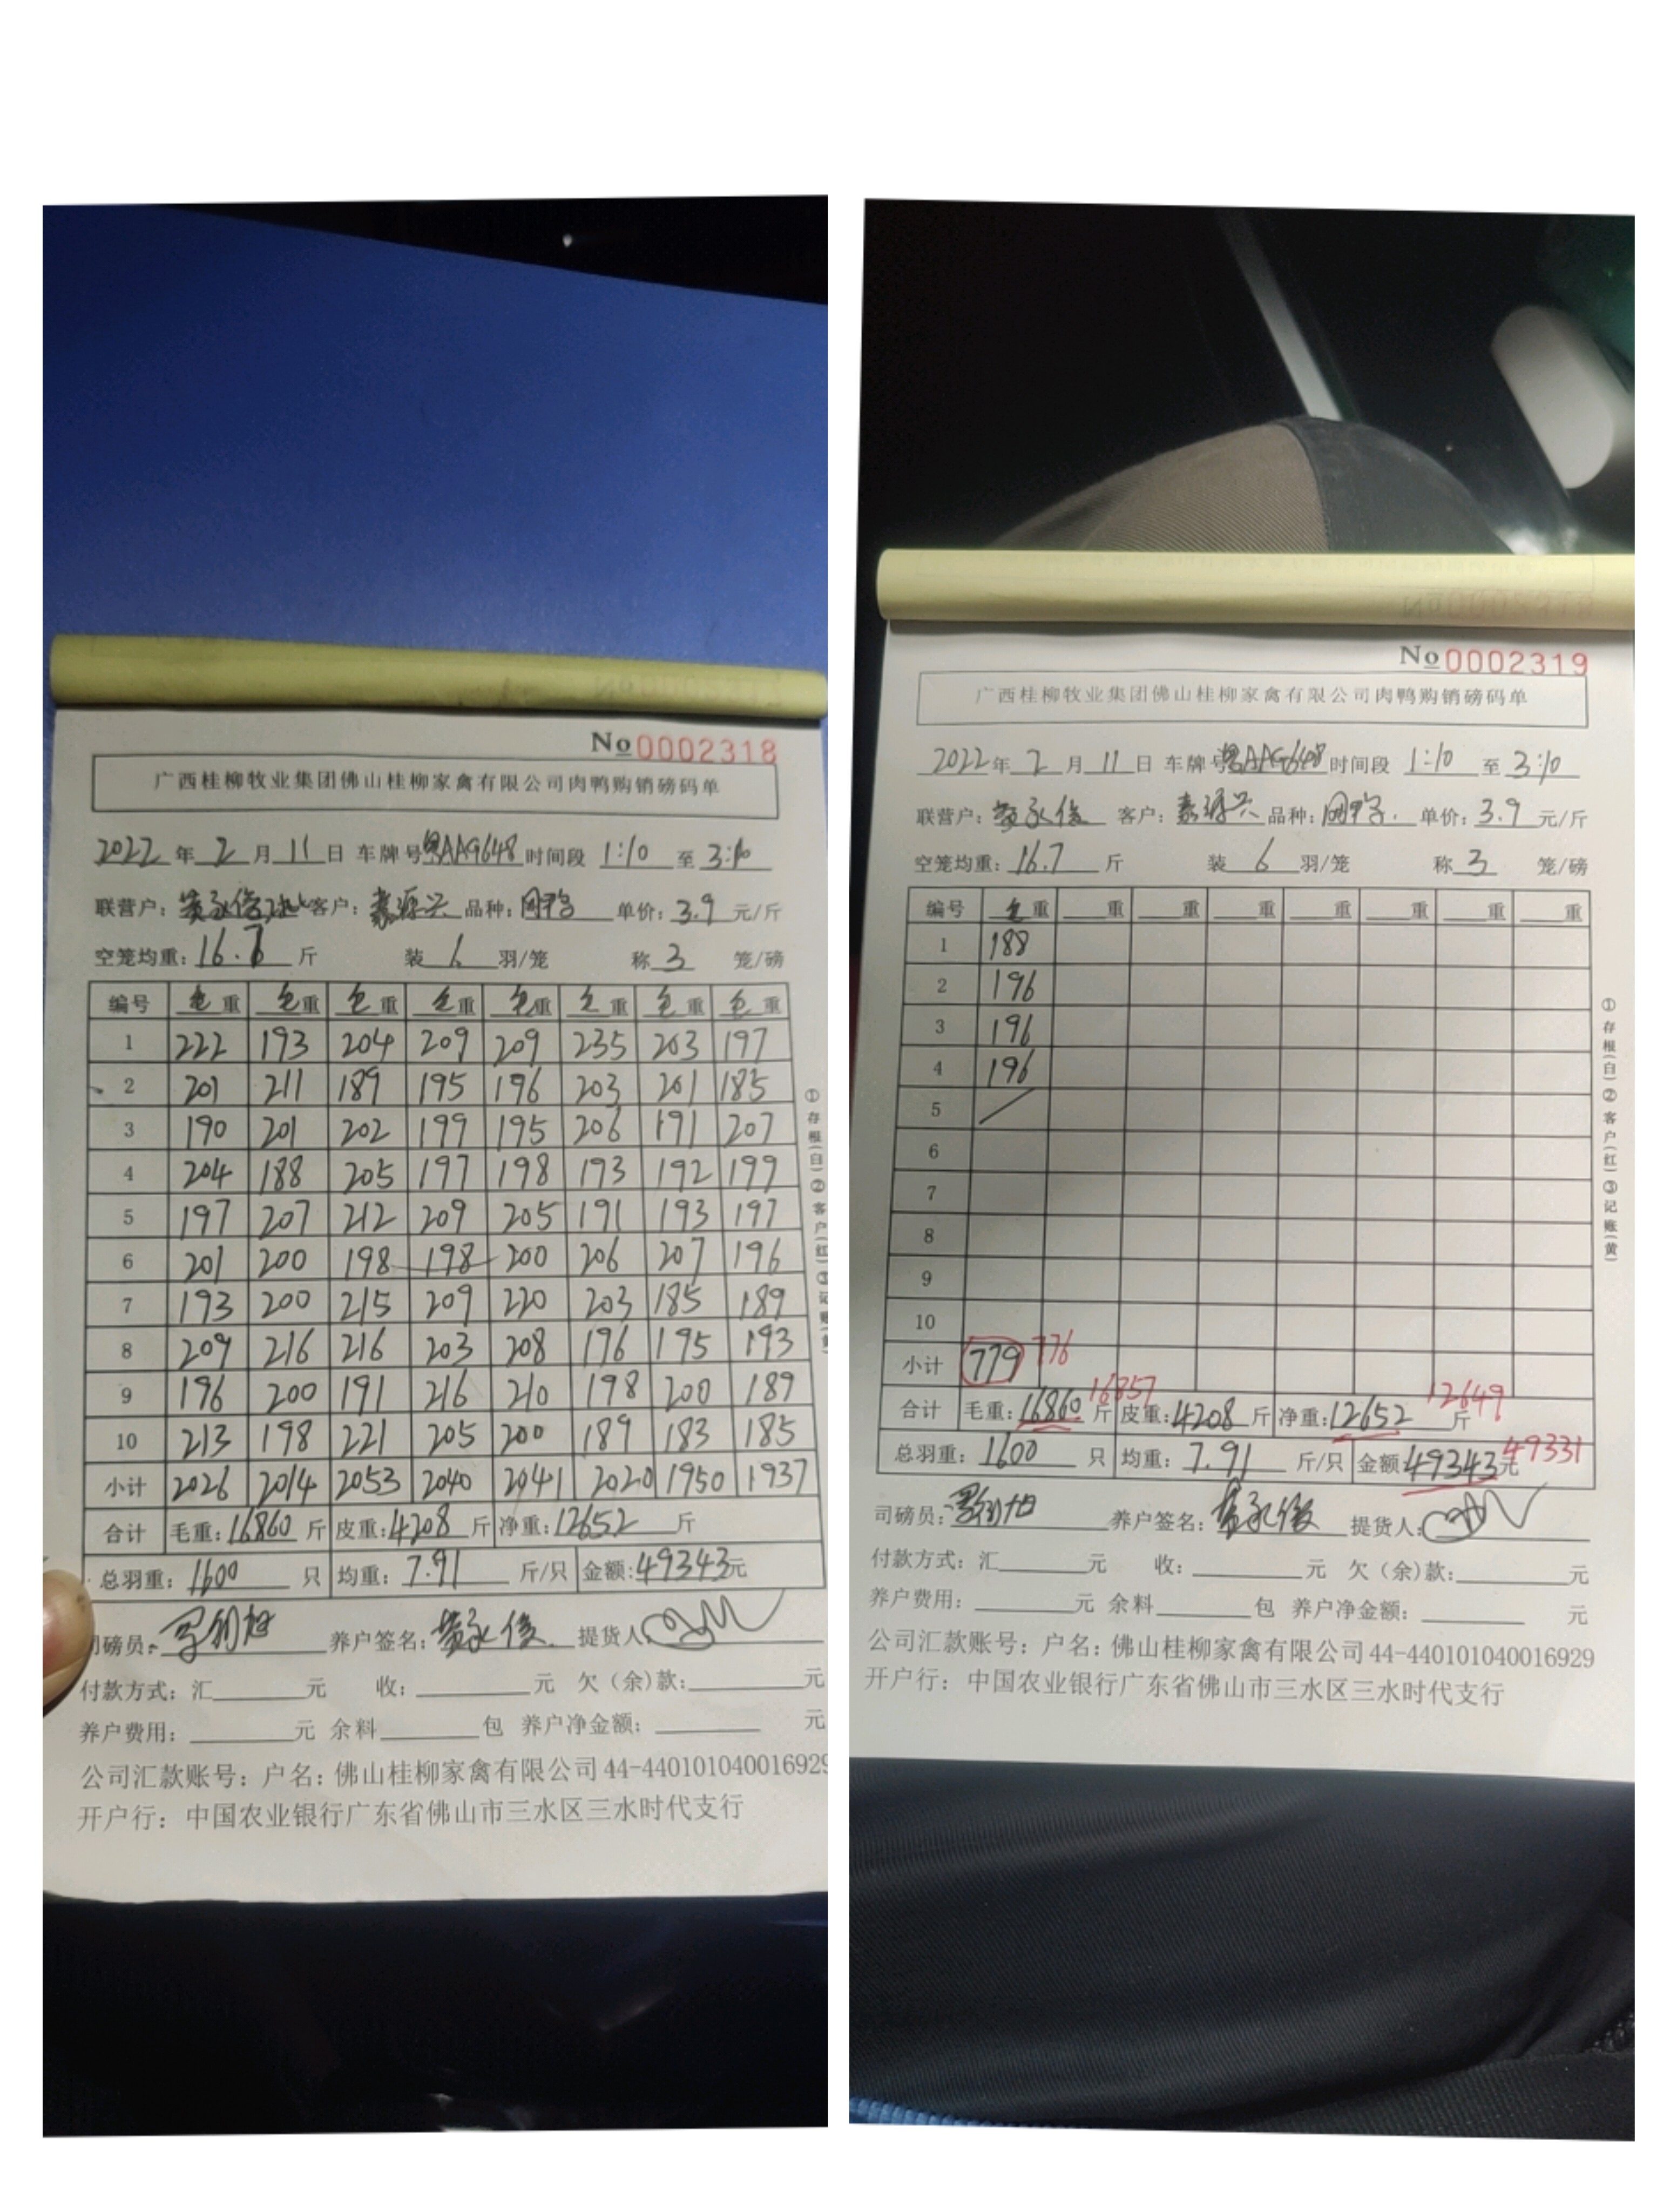 No 0002318
广西桂柳牧业集团佛山桂柳家禽有限公司肉鸭购销磅码单
2022 年 2 月 11 日 车牌号 粤AAG648 时间段 1:10 至 3:10
联营户: 黄永俊 客户: 嘉源兴 品种: 单价: 3.9 元/斤
空笼均重: 16.7 斤 装 6 羽/笼 称 3 笼/磅
编号 毛重 毛重 毛重 毛重 毛重 毛重 毛重 毛重
1 222 193 204 209 209 235 203 197
2 201 211 189 195 196 203 201 185
3 190 201 202 199 195 206 191 207
4 204 188 205 197 198 193 192 199
5 197 207 212 209 205 191 193 197
6 201 200 198 198 200 206 207 196
7 193 200 215 209 220 203 185 189
8 209 216 216 203 208 196 195 193
9 196 200 191 216 210 198 200 189
10 213 198 221 205 200 189 183 185
小计 2026 2014 2053 2040 2041 2020 1950 1937
合计 毛重: 16860 斤 皮重: 4208 斤 净重: 12652 斤
总羽重: 1600 只 均重: 7.91 斤/只 金额: 49343元
司磅员: 养户签名: 黄永俊 提货人:
付款方式: 汇 元 收: 元 欠(余)款: 元
养户费用: 元 余料 包 养户净金额: 元
公司汇款账号: 户名: 佛山桂柳家禽有限公司 44-440101040016929
开户行: 中国农业银行广东省佛山市三水区三水时代支行
①存根(白)②客户(红)③记账(黄)
No 0002319
广西桂柳牧业集团佛山桂柳家禽有限公司肉鸭购销磅码单
2022 年 2 月 11 日 车牌号 粤AAG648 时间段 1:10 至 3:10
联营户: 黄永俊 客户: 嘉源兴 品种: 单价: 3.9 元/斤
空笼均重: 16.7 斤 装 6 羽/笼 称 3 笼/磅
编号 毛重 重 重 重 重 重 重 重
1 188
2 196
3 196
4 196
5
6
7
8
9
10
小计 779 776
合计 毛重: 16860 斤 16857 皮重: 4208 斤 净重: 12652 斤 12649
总羽重: 1600 只 均重: 7.91 斤/只 金额: 49343元 49331
司磅员: 养户签名: 黄永俊 提货人:
付款方式: 汇 元 收: 元 欠(余)款: 元
养户费用: 元 余料 包 养户净金额: 元
公司汇款账号: 户名: 佛山桂柳家禽有限公司 44-440101040016929
开户行: 中国农业银行广东省佛山市三水区三水时代支行
①存根(白)②客户(红)③记账(黄)